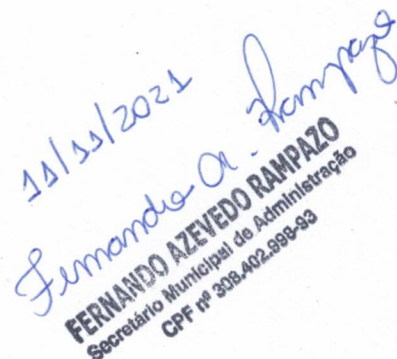 11/11/2021
Fernando A. Rampazo
FERNANDO AZEVEDO RAMPAZO
Secretário Municipal de Administração
CPF nº 309.402.998-93